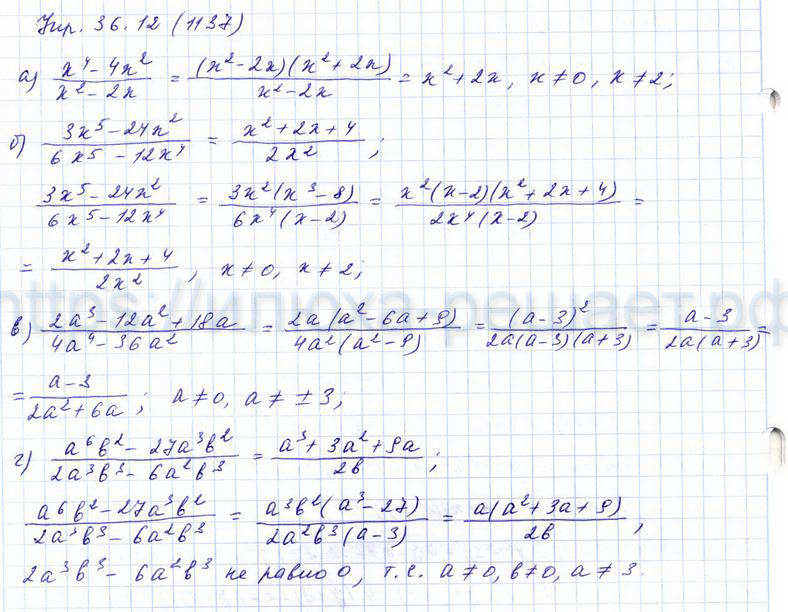 Упр. 36.12 (1137)
а) (x⁴ - 4x²)/(x² - 2x) = ((x² - 2x)(x² + 2x))/(x² - 2x) = x² + 2x, x ≠ 0, x ≠ 2;
б) (3x⁵ - 24x²)/(6x⁵ - 12x⁴) = (x² + 2x + 4)/(2x²);
(3x⁵ - 24x²)/(6x⁵ - 12x⁴) = (3x²(x³ - 8))/(6x⁴(x - 2)) = (x²(x - 2)(x² + 2x + 4))/(2x⁴(x - 2)) =
= (x² + 2x + 4)/(2x²), x ≠ 0, x ≠ 2;
https://илюха-решает.рф
в) (2a³ - 12a² + 18a)/(4a⁴ - 36a²) = (2a(a² - 6a + 9))/(4a²(a² - 9)) = (a - 3)²/(2a(a - 3)(a + 3)) = (a - 3)/(2a(a + 3)) =
= (a - 3)/(2a² + 6a); a ≠ 0, a ≠ ± 3;
г) (a⁶b² - 27a³b²)/(2a³b³ - 6a²b³) = (a³ + 3a² + 9a)/(2b);
(a⁶b² - 27a³b²)/(2a³b³ - 6a²b³) = (a³b²(a³ - 27))/(2a²b³(a - 3)) = (a(a² + 3a + 9))/(2b),
2a³b³ - 6a²b³ не равно 0, т.е. a ≠ 0, b ≠ 0, a ≠ 3.